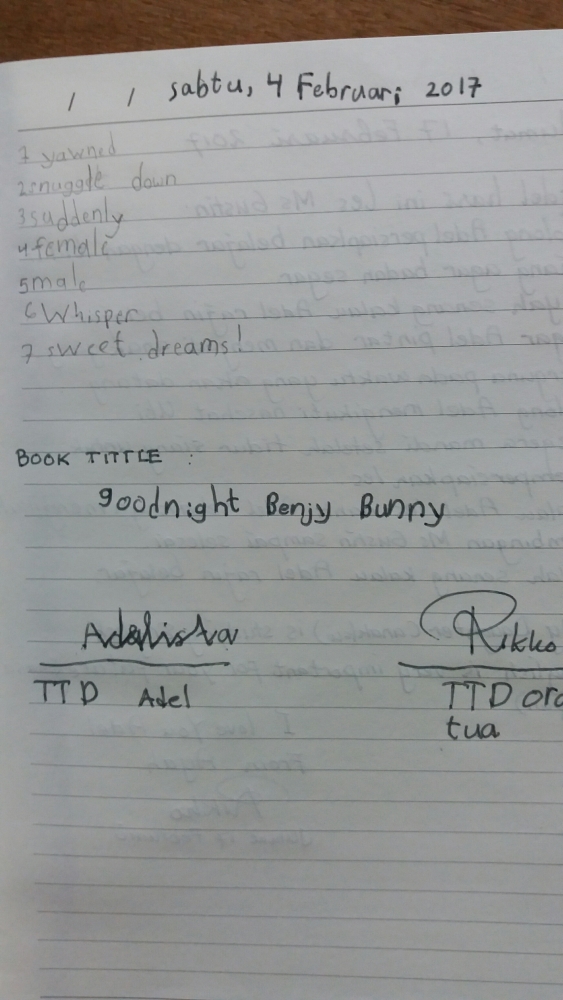 / / sabtu, 4 Februari 2017
1 yawned
2 snuggle down
3 suddenly
4 female
5 male
6 Whisper
7 sweet dreams!
BOOK TITTLE :
goodnight Benjy Bunny
Adelista Rikko
TTD Adel TTD ora
tua